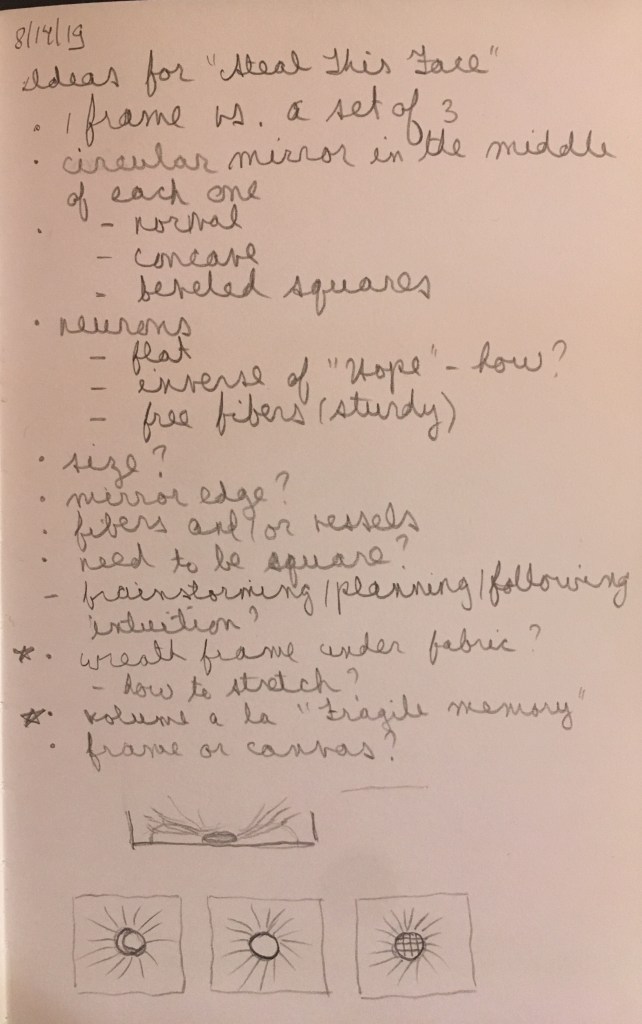 8/14/19
Ideas for "Steal This Face"
· 1 frame vs. a set of 3
· circular mirror in the middle
of each one
· - normal
- concave
- beveled squares
· neurons
- flat
- inverse of "Hope" - how?
- free fibers (sturdy)
· size?
· mirror edge?
· fibers and/or vessels
· need to be square?
- brainstorming/planning/following
intuition?
* · wreath frame under fabric?
- how to stretch?
* · volume a la "Fragile memory"
· frame or canvas?